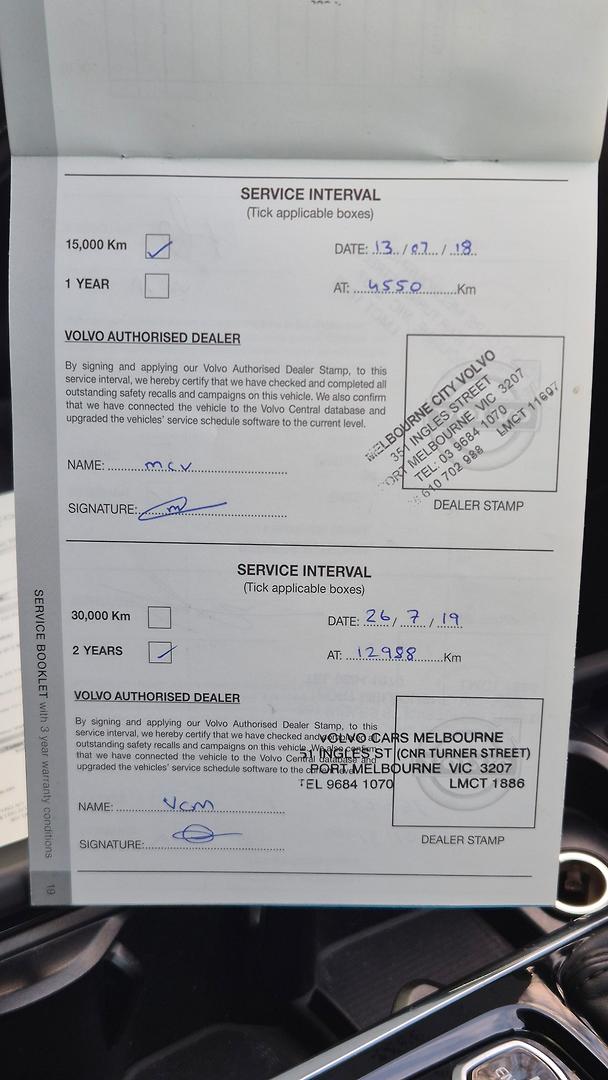 SERVICE INTERVAL
(Tick applicable boxes)
15,000 Km
DATE: 13 / 07 / 18
1 YEAR
AT: 4550 Km
VOLVO AUTHORISED DEALER
By signing and applying our Volvo Authorised Dealer Stamp, to this
service interval, we hereby certify that we have checked and completed all
outstanding safety recalls and campaigns on this vehicle. We also confirm
that we have connected the vehicle to the Volvo Central database and
upgraded the vehicles' service schedule software to the current level.
MELBOURNE CITY VOLVO
351 INGLES STREET
PORT MELBOURNE, VIC 3207
TEL: 03 9684 1070 LMCT 11697
610 702 988
NAME: mcv
SIGNATURE:
DEALER STAMP
SERVICE INTERVAL
(Tick applicable boxes)
30,000 Km
DATE: 26 / 7 / 19
2 YEARS
AT: 12988 Km
VOLVO AUTHORISED DEALER
By signing and applying our Volvo Authorised Dealer Stamp, to this
service interval, we hereby certify that we have checked and completed all
outstanding safety recalls and campaigns on this vehicle. We also confirm
that we have connected the vehicle to the Volvo Central database and
upgraded the vehicles' service schedule software to the current level.
VOLVO CARS MELBOURNE
51 INGLES ST (CNR TURNER STREET)
PORT MELBOURNE VIC 3207
TEL 9684 1070 LMCT 1886
NAME: VCM
SIGNATURE:
DEALER STAMP
SERVICE BOOKLET with 3 year warranty conditions
19